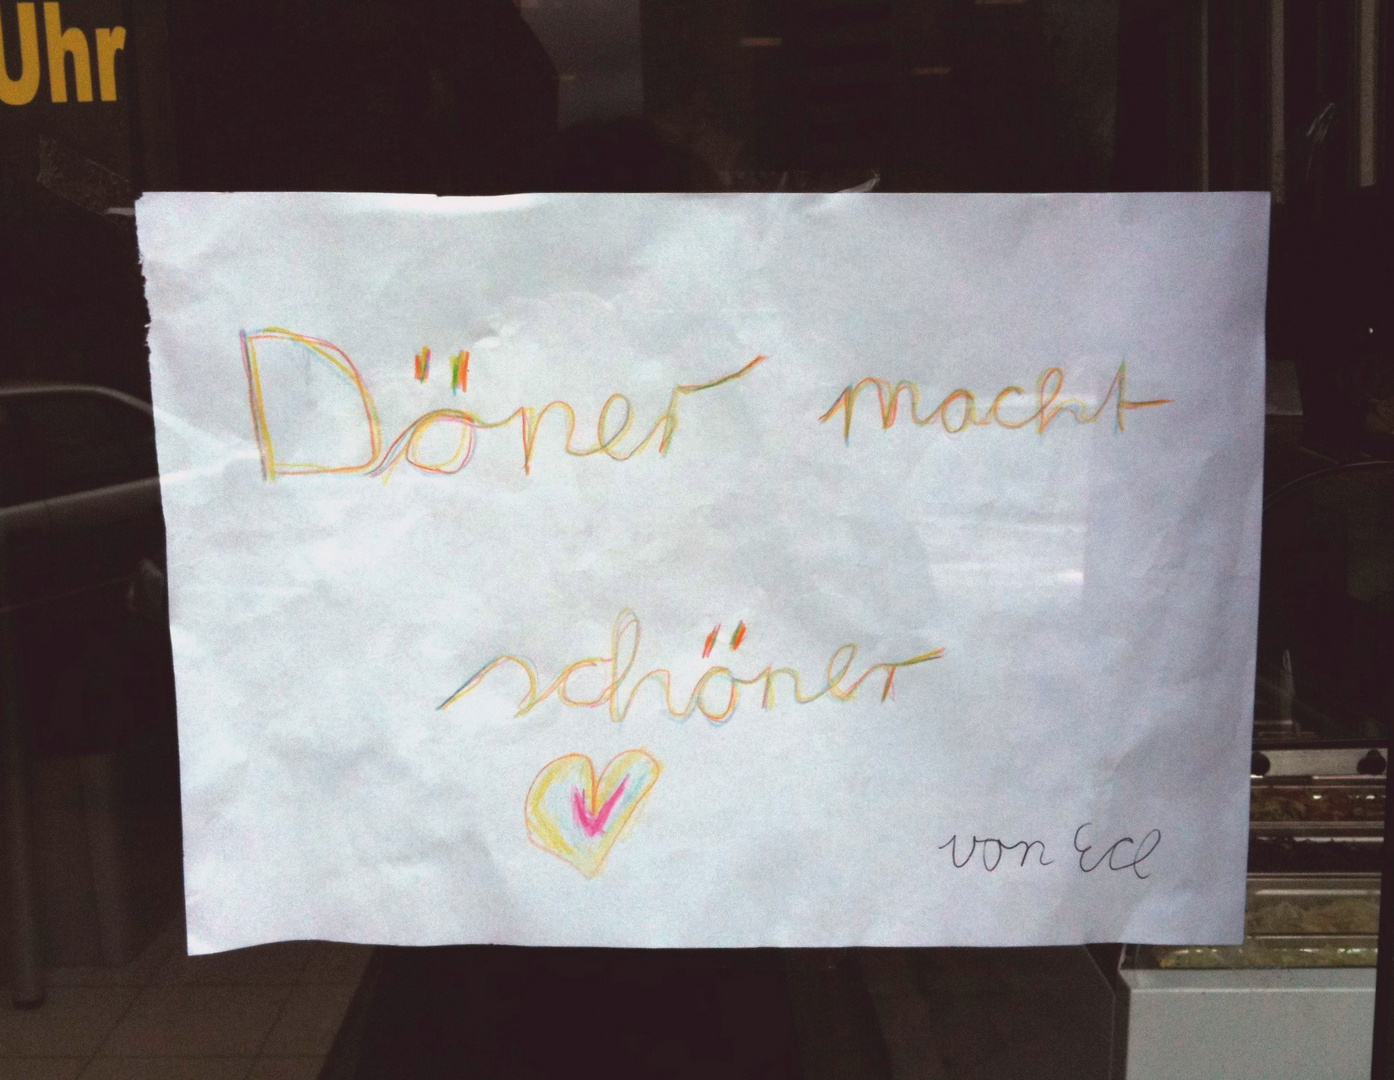 Uhr
Döner macht
schöner
von Ece